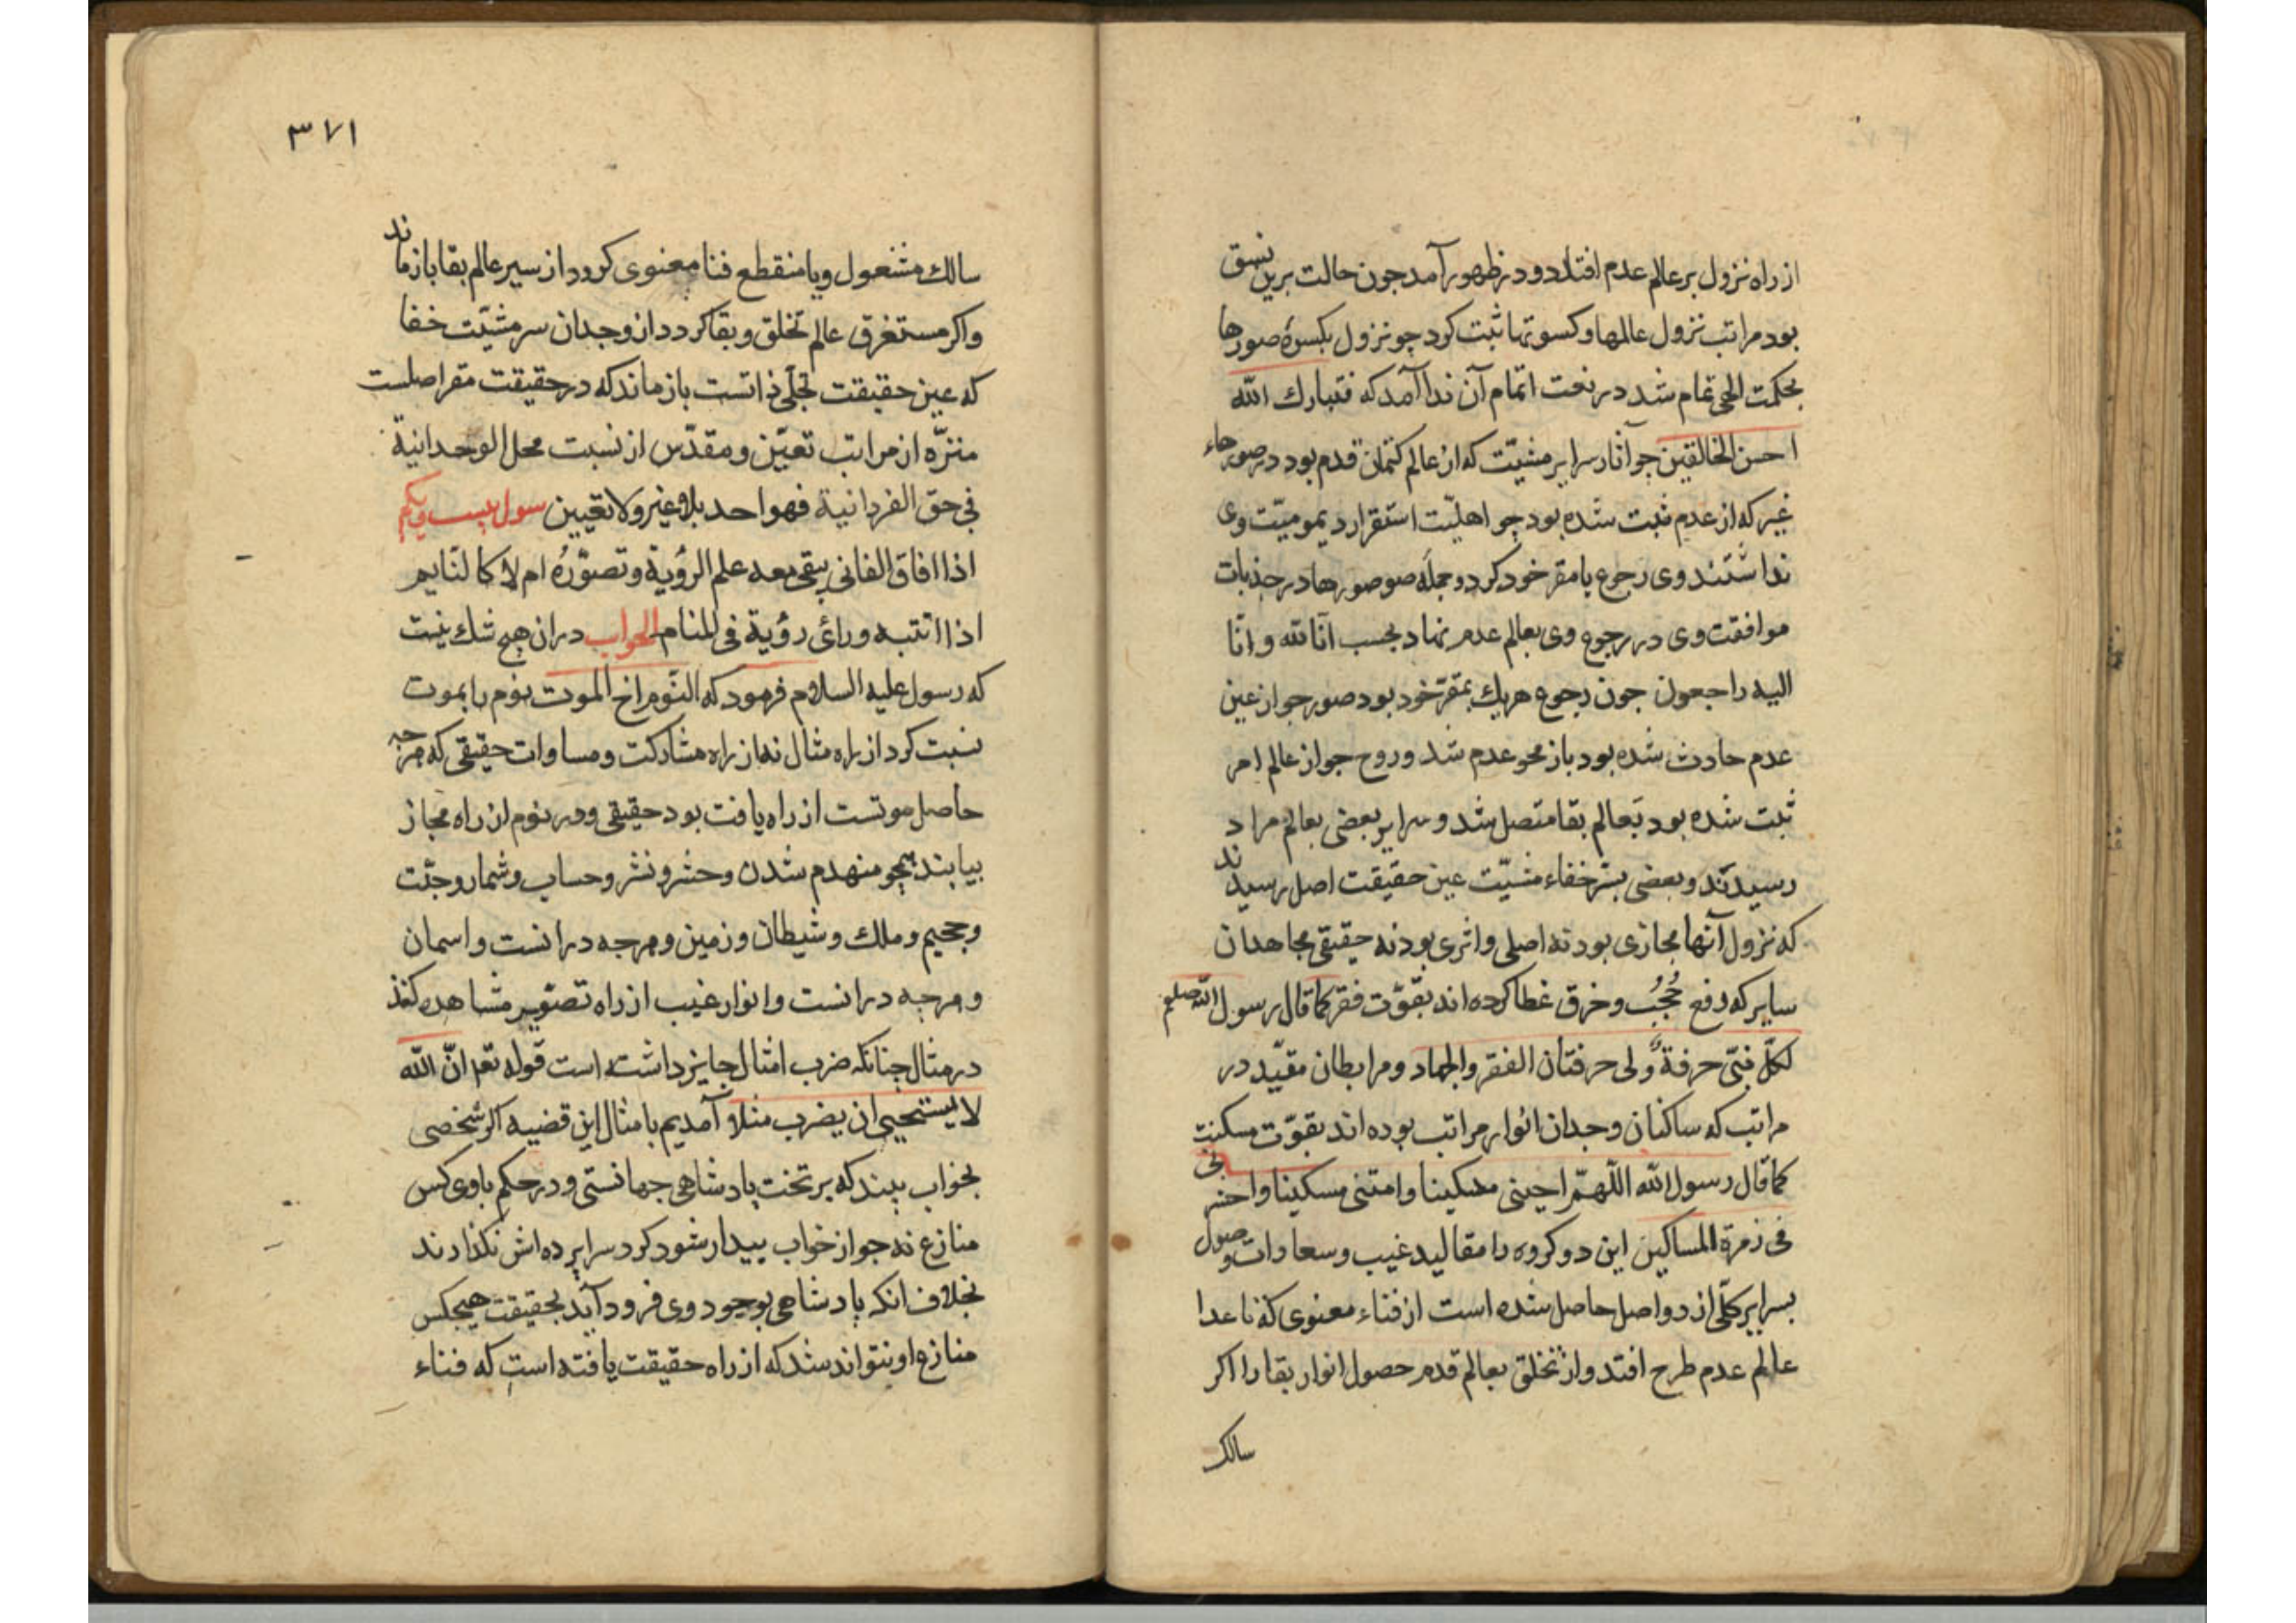 از راه نزول بر عالم عدم افتاد و در ظهور آمد جون حالت برین نسق
بود مراتب نزول عالمها و کسوتها ثبت کرد چو نزول بکسوهٔ صورها
بحکمت الحی تمام شد در نعت اتمام آن ندا آمد که فتبارك الله
احسن الخالقین چو آثار سرایر مشیّت که از عالم کتمان قدم بود در صورجاء
غیر که از عدم ثبت شده بود چو اهلیّت استقرار دیمومیّت وی
نداشتند وی رجوع با مقر خود کرد و جمله صورها در جذبات
موافقت وی در رجوع وی بعالم عدم نهاد بحسب انّا لله و انّا
الیه راجعون جون رجوع هریك بمقرّ خود بود صور جو از عین
عدم حادث شده بود باز محو عدم شد و روح جو از عالم امر
ثبت شده بود بعالم بقا متصل شد و سرایر بعضی بعالم مراد
رسیدند و بعضی بسرّ خفاء مشیّت عین حقیقت اصل رسیدند
که نزول آنها مجازی بود نه اصلی و اثری بود نه حقیقی مجاهدان
سایر که رفع حُجُب و خرق غطا کرده اند بقوّت فقر کما قال رسول الله صلعم
لکلّ نبیّ حرفة ولی حرفتان الفقر والجهاد و مرابطان مقیّد در
مراتب که ساکنان وجدان انوار مراتب بوده اند بقوّت مسکنت
کما قال رسول الله اللّهمّ احینی مسکینا وامتنی مسکینا واحشرنی
فی زمرة المساکین این دو کروه را مقالید غیب و سعادات وصول
بسرایر کلّی از دو اصل حاصل شده است از فناء معنوی که تا عدا
عالم عدم طرح افتد و از تخلق بعالم قدم حصول انوار بقا را اکر
سالك
٣٧١
سالك مشغول و یا منقطع فنا معنوی کردد از سیر عالم بقا بازماند
واکر مستغرق عالم تخلق و بقا کردد از وجدان سر مشیّت خفا
که عین حقیقت تجلّی ذاتست بازماند که در حقیقت مقر اصلست
منزّه از مراتب تعیّن و مقدّس از نسبت محل الوحدانیة
فی حق الفردانیة فهو واحد بلا غیر ولا تعیین سول بیست ویکم
اذا افاق الفانی یبقی معه علم الرؤیة وتصوّرُهُ ام لا کالنّایم
اذا انتبه ورأی رؤیة فی المنام الجواب دران هیچ شك نیست
که رسول علیه السلام فرمود که النّوم اخ الموت نوم را بموت
نسبت کرد از راه مثال نه از راه مشارکت و مساوات حقیقی که هرجه
حاصل موتست از راه یافت بود حقیقی و در نوم از راه مجاز
بیابند همچو منهدم شدن و حشر و نشر و حساب و شمار و جنّت
و جحیم و ملك و شیطان و زمین و هرجه درانست و اسمان
و هرجه درانست و انوار غیب از راه تصوّیر مشاهده کنند
در مثال جنانکه ضرب امثال جایز داشته است قوله تع انّ الله
لا یستحیی ان یضرب مثلا آمدیم با مثال این قضیه اکر شخصی
بخواب بیند که بر تخت پادشاهی جهانستی و در حکم با وی کس
منازع نه جو از خواب بیدار شود کرد سرابرده اش نکذارند
بخلاف انکه پادشاهی بوجود وی فرود آید بحقیقت هیجکس
منازع او نتواند شد که از راه حقیقت یافته است که فناء